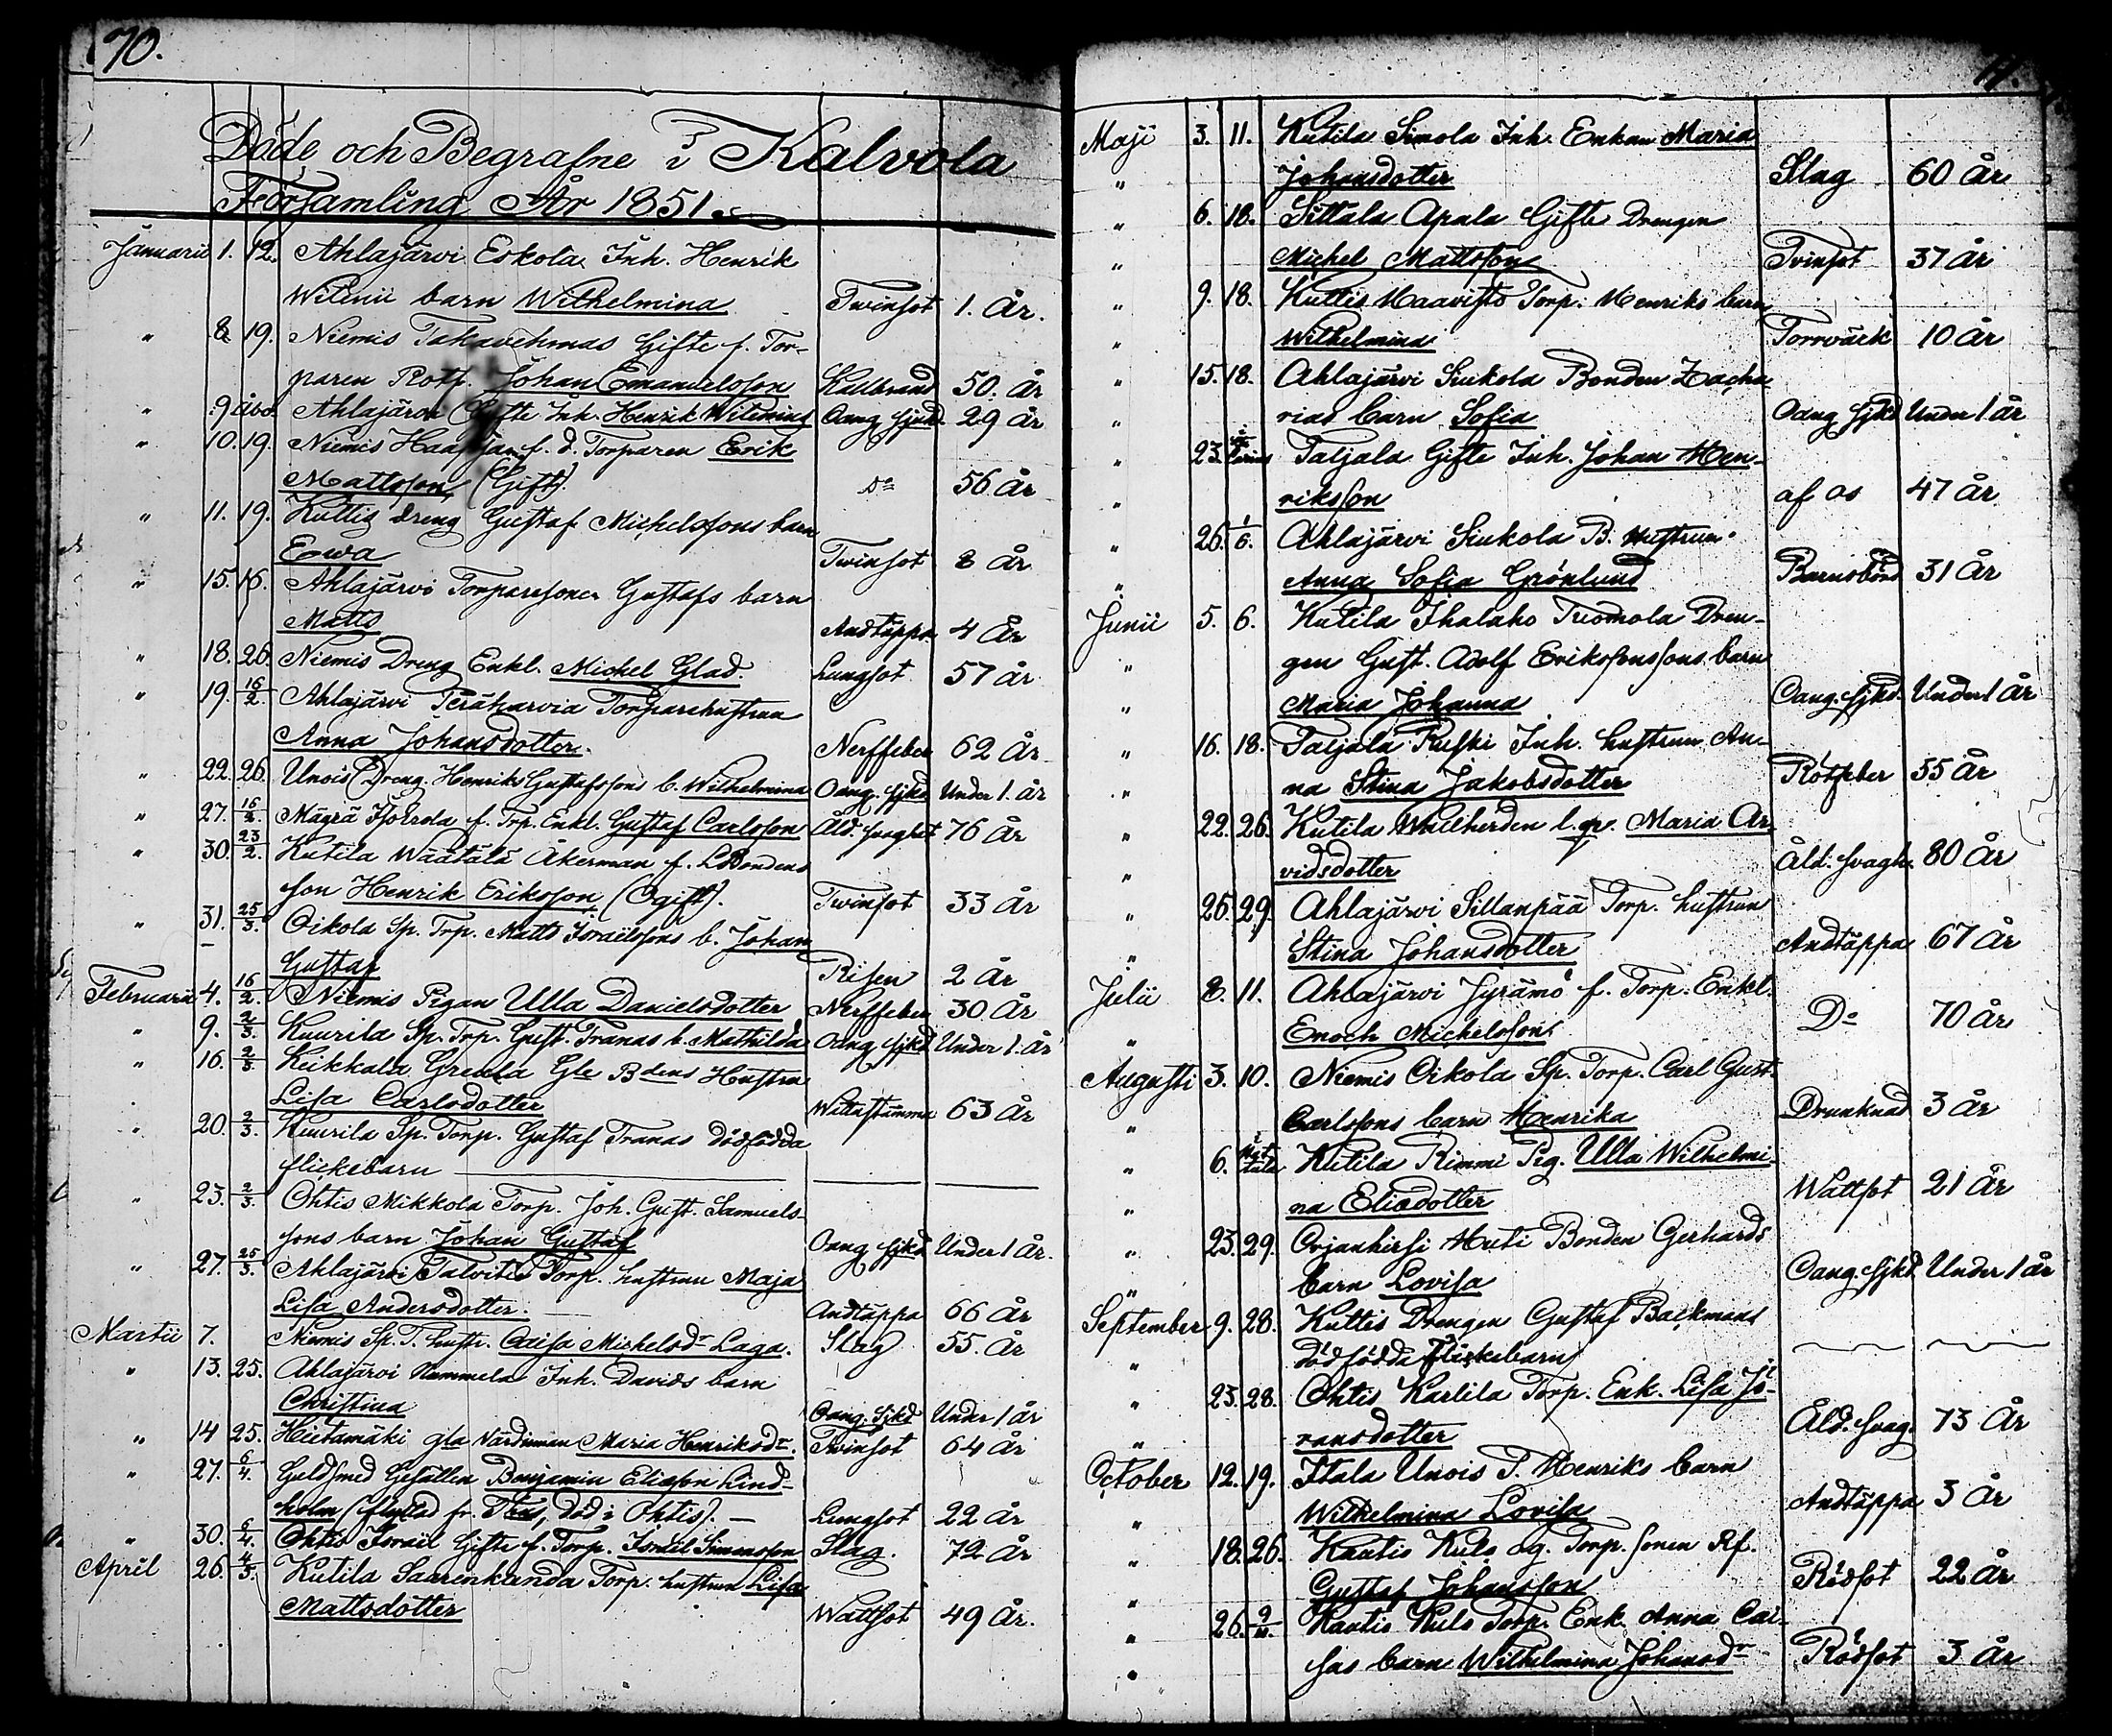 70.
Döde och Begrafne i Kalvola
Församling År 1851.
Januarii 1. 12. Ahlajärvi Eskola Inh. Henrik
Wilenii barn Wilhelmina Twinsot 1. År.
" 8. 19. Niemis Gifte f. Tor-
paren Rotf. Johan Emanuelsson Kallbrand 50. År
" 9. Åbo. Ahlajärvi Gifte Inh. Henrik Wilenius Oang sjukd 29 År
" 10. 19. Niemis f. d. Torparen Erik
Mattsson, (Gift). Do 56 År
" 11. 19. Kuttis dreng Gustaf Michelssons barn
Ewa Twinsot 8 År
" 15. 16. Ahlajärvi Torparesonen Gustafs barn
Matts Andtäppa 4 År
" 18. 26. Niemis Dreng Enkl. Michel Glad. Lungsot 57 År
" 19. 16/2. Ahlajärvi Peräharvia Torparehustrun
Anna Johansdotter. Nerffeber 62 År
" 22. 26. Unois Dreng. Henriks Gustafssons b. Wilhelmina Oang. sjkd Under 1. år
" 27. 16/2. Mägrä f. Trp. Enkl. Gustaf Carlsson Åld. svaghet 76 År
" 30. 23/2. Kutila Wäätälä Åkerman f. LBondens
son Henrik Eriksson, (Ogift). Twinsot 33 År
" 31. 25/3. Oikola Sp. Trp. Matts Israëlssons b. Johan
Gustaf Risen 2 År
Februarii 4. 16/2. Niemis Pigan Ulla Danielsdotter Nerffeber 30 År
" 9. 2/3. Kuurila Sp. Trp. Gust. Tranas b. Mathilda Oang sjkd Under 1. år
" 16. 2/3. Keikkala Greula Gle Bdens Hustru
Lisa Carlsdotter Wattustämma 63 År
" 20. 2/3. Kuurila Sp. Torp. Gustaf Tranas dödfödda
flickebarn
" 23. 2/3. Ohtis Mikkola Torp. Joh. Gust. Samuels-
sons barn Johan Gustaf Oang sjkd Under 1 år.
" 27. 25/3. Ahlajärvi Talvitie Torp. hustrun Maja
Lisa Andersdotter. Andtäppa 66 År
Martii 7. Niemis Sp. T. hustr. Caisa Michelsdr Laga. Slag 55. År
" 13. 25. Ahlajärvi Nammela Inh. Davids barn
Christina Oang. Sjkd Under 1 år
" 14 25. Hietamäki gla Värdinnan Maria Henriksdr. Twinsot 64 År
" 27. 6/4. Guldsmed Gesällen Benjamin Eliasson Lind-
holm (flyttad fr. död i Ohtis). — Lungsot 22 År
" 30. 6/4. Ohtis Israël Gifte f. Torp. Israël Simonsson Slag. 72 År
April 26. 4/5. Kutila Saarenkanda Torp. hustrun Lisa
Mattsdotter Wattsot 49 År.
Maji 3. 11. Kutila Simola Inh. Enkan Maria
" Johansdotter Slag 60 År
" 6. 18. Sittala Apala Gifte Drengen
" Michel Mattsson Tvinsot 37 År
" 9. 18. Kuttis Haavisto Torp. Henriks barn
" Wilhelmina Torrvärk 10 År
" 15. 18. Ahlajärvi Siukola Bonden Zacha
" rias barn Sofia Oang sjkd Under 1 år
" 23. Taljala Gifte Inh. Johan Hen-
" riksson af os 47 År
" 26. 1/6. Ahlajärvi Siukola B. Hustrun
" Anna Sofia Grönlund Barnsbörd 31 År
Junii 5. 6. Kutila Ihalaho Tuomola Dren-
" gen Gust. Adolf Erikssons barn
" Maria Johanna Oang. sjkd. Under 1 år
" 16. 18. Taljala Ruski Inh. hustrun An-
" na Stina Jakobsdotter Rötfeber 55 År
" 22. 26. Kutila l. qv. Maria Ar-
" vidsdotter Åld. svagh. 80 År
" 26. 29. Ahlajärvi Sillanpää Torp. hustrun
" Stina Johansdotter Andtäppa 67 År
Julii 8. 11. Ahlajärvi Jyrämö f. Torp. Enkl.
" Enoch Michelsson Do 70 År
Augusti 3. 10. Niemis Oikola Sp. Torp. Carl Gust.
" Carlssons barn Henrika Drunknad 3 År
" 6. Kutila Rimmi Pig. Ulla Wilhelmi-
" na Eliædotter Wattsot 21 År
" 23. 29. Orjanhirsi Huti Bonden Gerhards
" barn Lovisa Oang. sjkd Under 1 år
September 9. 28. Kuttis Drengen Gustaf Backmans
" dödfödda flickebarn
" 23. 28. Ohtis Karlila Torp. Enk. Lisa Jö-
" ransdotter Åld. svag. 73 År
October 12. 19. Ittala Unois T. Henriks barn
" Wilhelmina Lovisa Andtäppa 3 År
" 18. 26. Kautis Kulo og. Torp. sonen Rf.
" Gustaf Johansson Rödsot 22 År
" 26. 9/11. Kautis Kulo Torp. Enk. Anna Cai-
" sas barn Wilhelmina Johansdr Rödsot 3 År